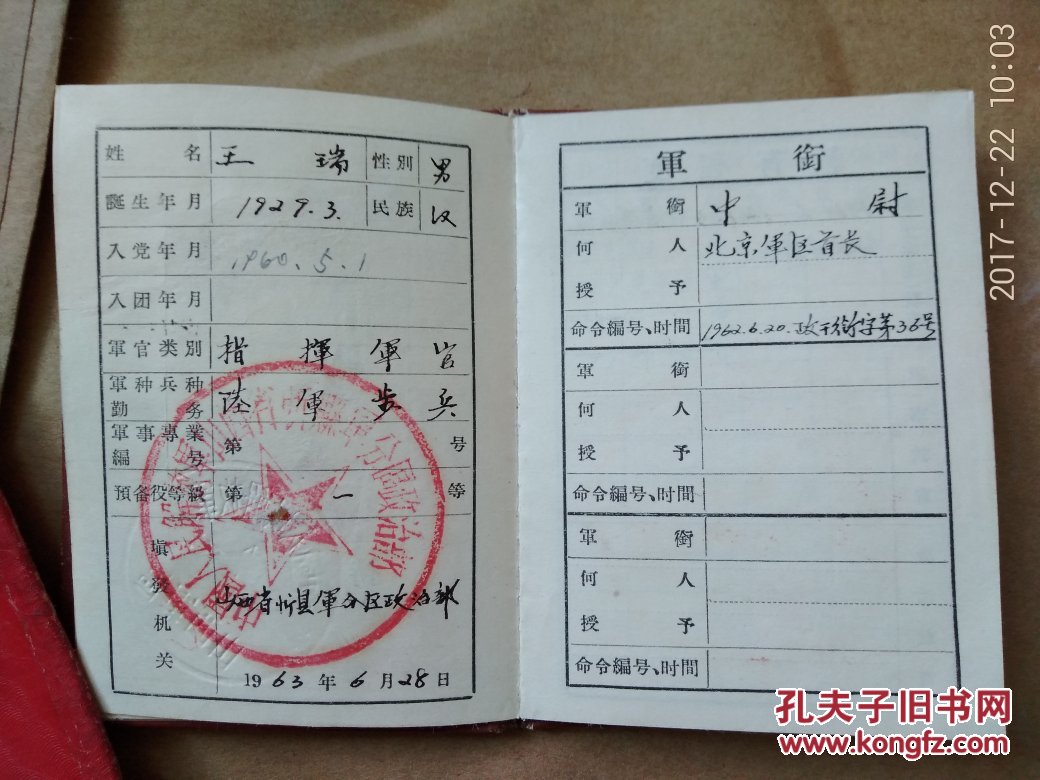 姓名 王瑞 性別 男
誕生年月 1929.3. 民族 汉
入党年月 1960.5.1
入团年月
軍官类別 指揮軍官
軍种兵种勤务 陆軍步兵
軍事專業編号 第 号
預备役等級 第一等
填發机关
山西省忻县軍分区政治部
1963年6月28日
軍銜
軍銜 中尉
何人授予 北京軍区首长
命令編号、时間 1962.6.20.政干銜字第36号
軍銜
何人授予
命令編号、时間
軍銜
何人授予
命令編号、时間
2017-12-22 10:03
孔夫子旧书网
www.kongfz.com